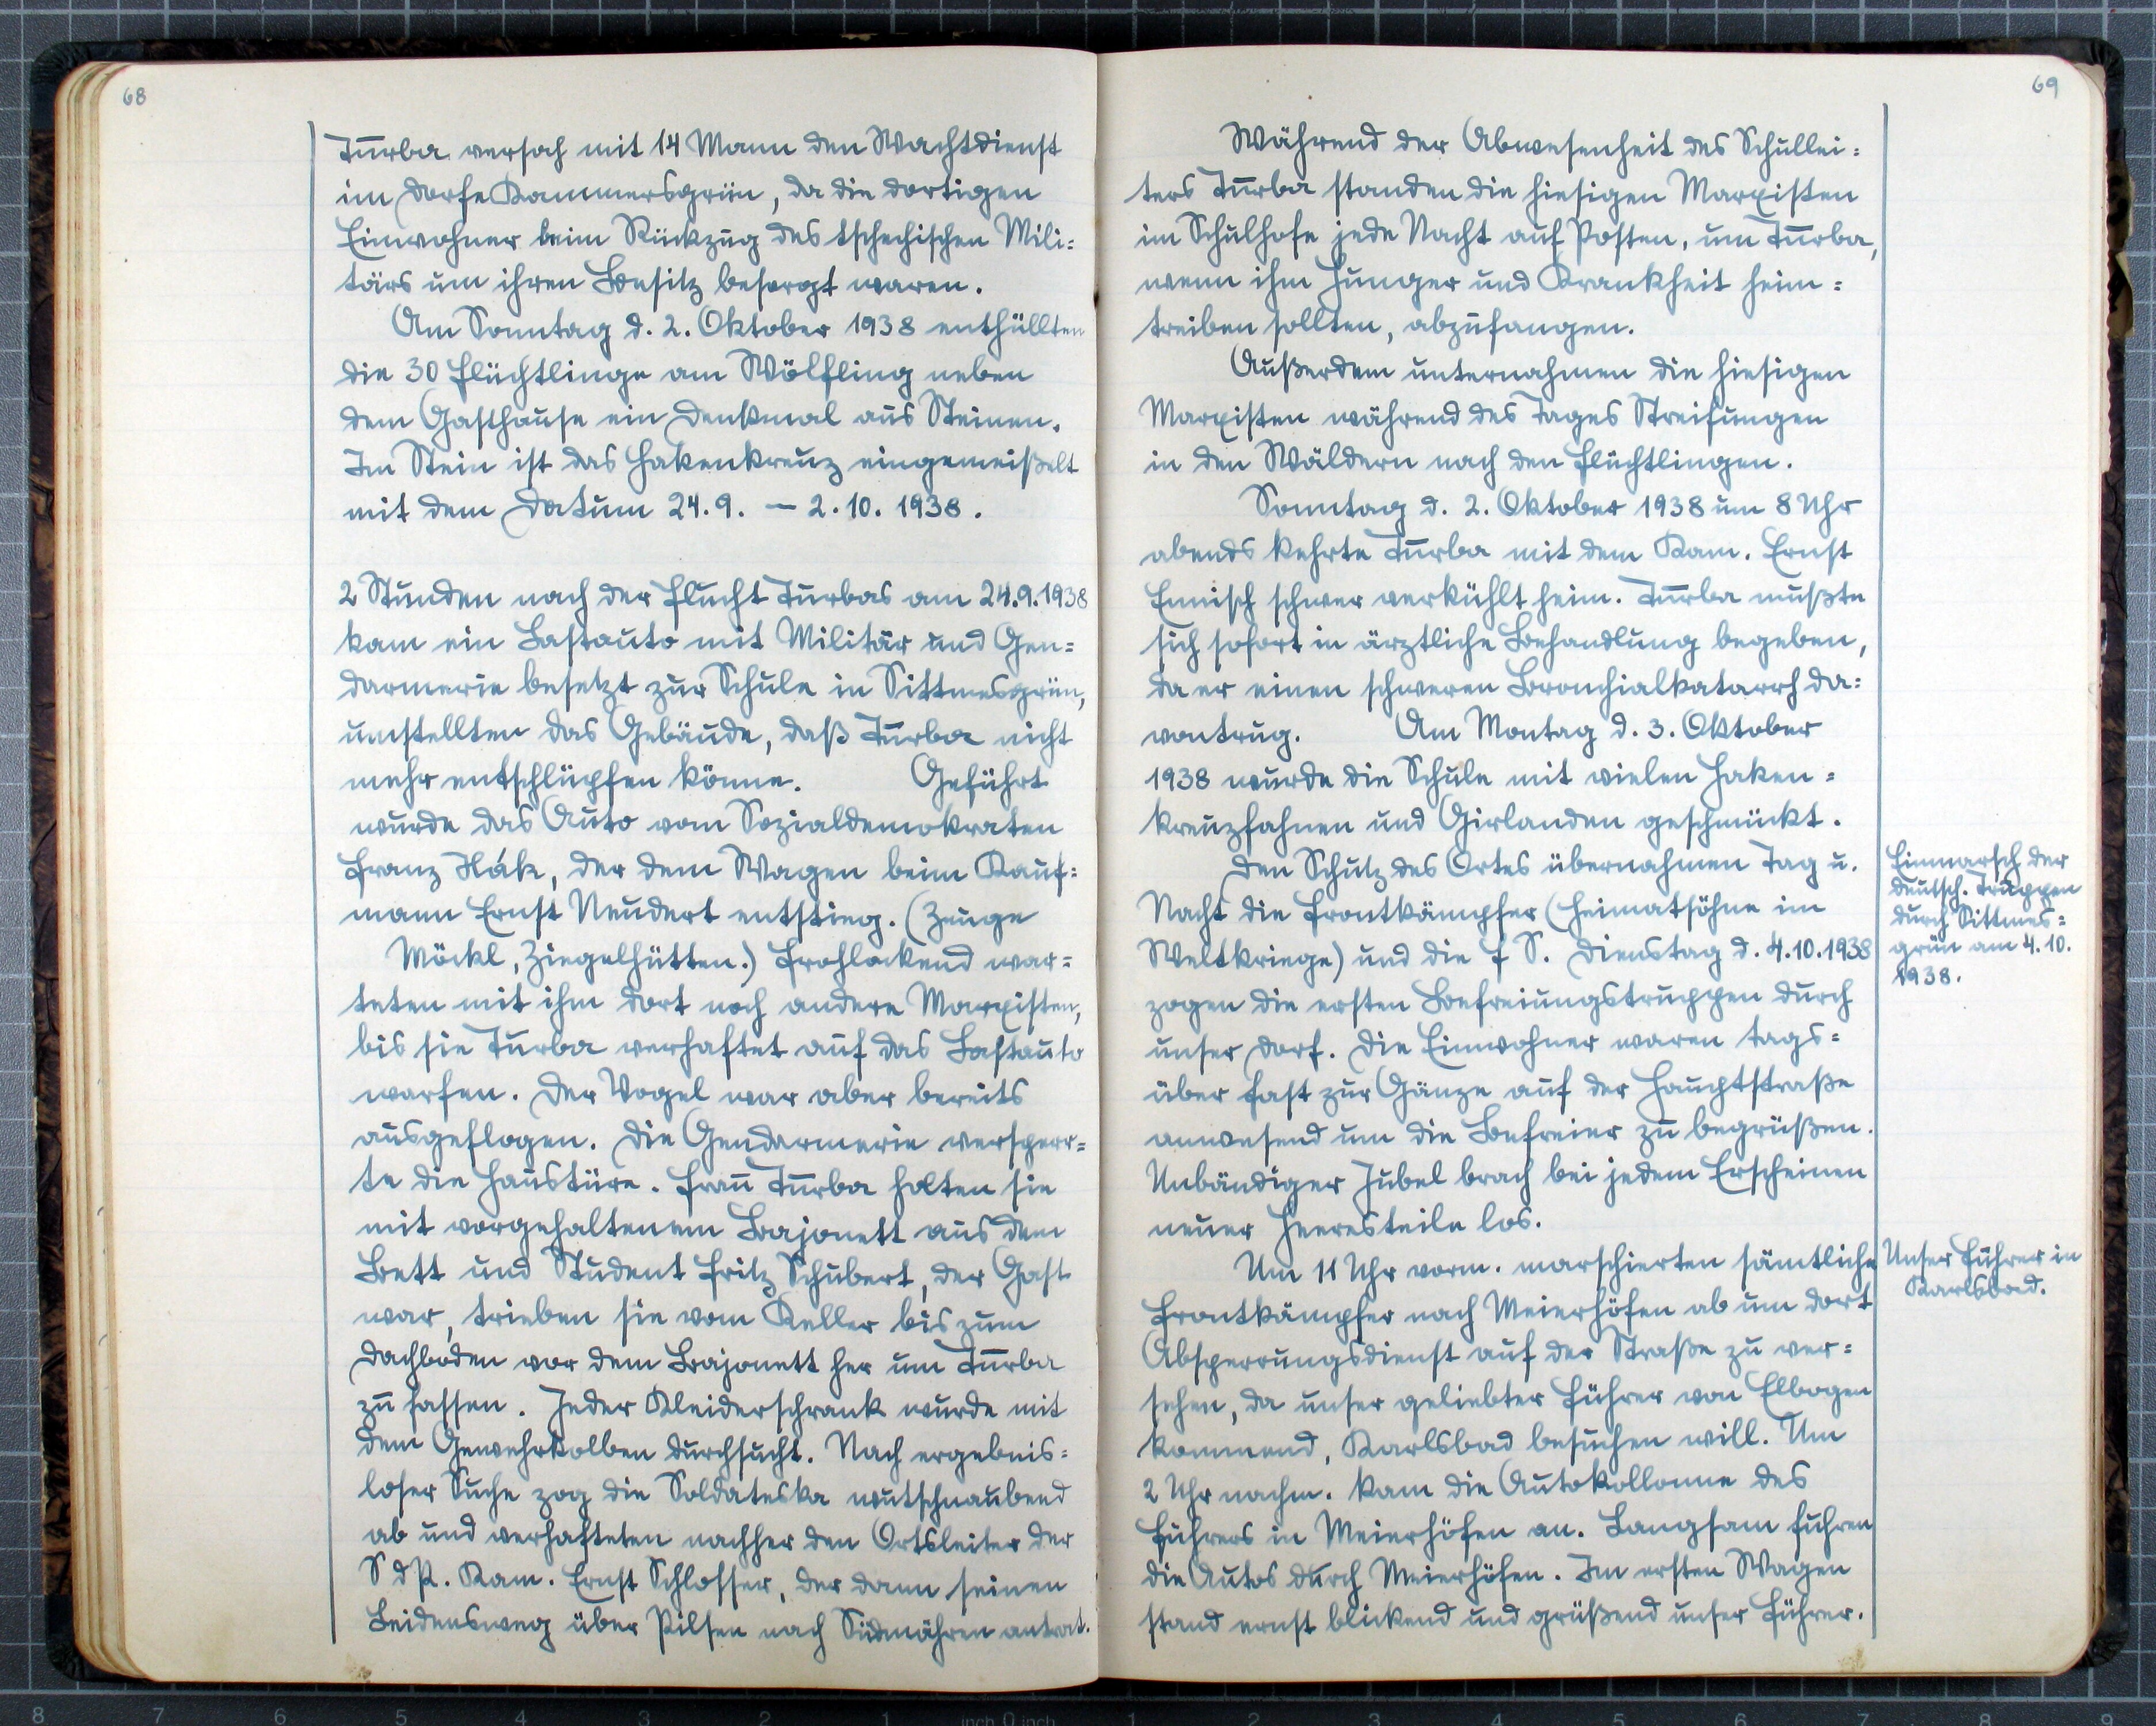 68
Turba versah mit 14 Mann den Wachtdienst
im Dorfe Kammersgrün, da die dortigen
Einwohner beim Rückzug des tschechischen Mili=
tärs um ihren Besitz besorgt waren.
Am Sonntag d. 2. Oktober 1938 enthüllten
die 30 Flüchtlinge am Wölfling neben
dem Gasthause ein Denkmal aus Steinen.
Im Stein ist das Hakenkreuz eingemeißelt
mit dem Datum 24.9. – 2.10. 1938.
2 Stunden nach der Flucht Turbas am 24.9.1938
kam ein Lastauto mit Militär und Gen=
darmerie besetzt zur Schule in Sittmesgrün,
umstellten das Gebäude, daß Turba nicht
mehr entschlüpfen könne. Geführt
wurde das Auto vom Sozialdemokraten
Franz Hák, der dem Wagen beim Kauf=
mann Ernst Neudert entstieg. (Zeuge
Möckl, Ziegelhütten.) Frohlockend war=
teten mit ihm dort noch andere Marxisten,
bis sie Turba verhaftet auf das Lastauto
warfen. Der Vogel war aber bereits
ausgeflogen. Die Gendarmerie versperr=
te die Haustüre. Frau Turba holten sie
mit vorgehaltenem Bajonett aus dem
Bett und Student Fritz Schubert, der Gast
war, trieben sie vom Keller bis zum
Dachboden vor dem Bajonett her um Turba
zu fassen. Jeder Kleiderschrank wurde mit
dem Gewehrkolben durchsucht. Nach ergebnis=
loser Suche zog die Soldateska wutschnaubend
ab und verhafteten nachher den Ortsleiter der
S d P. Kam. Ernst Schlosser, der dann seinen
Leidensweg über Pilsen nach Südmähren antrat.
69
Während der Abwesenheit des Schullei=
ters Turba standen die hiesigen Marxisten
im Schulhofe jede Nacht auf Posten, um Turba,
wenn ihm Hunger und Krankheit heim=
treiben sollten, abzufangen.
Außerdem unternahmen die hiesigen
Marxisten während des Tages Streifungen
in den Wäldern nach den Flüchtlingen.
Sonntag d. 2. Oktober 1938 um 8 Uhr
abends kehrte Turba mit dem Kam. Ernst
Ennisch schwer verkühlt heim. Turba mußte
sich sofort in ärztliche Behandlung begeben,
da er einen schweren Bronchialkatarrh da=
vontrug. Am Montag d. 3. Oktober
1938 wurde die Schule mit vielen Haken=
kreuzfahnen und Girlanden geschmückt.
Den Schutz des Ortes übernahmen Tag u.
Nacht die Frontkämpfer (Heimatsöhne im
Weltkriege) und die F S. Dienstag d. 4.10.1938
zogen die ersten Befreiungstruppen durch
unser Dorf. Die Einwohner waren tags=
über fast zur Gänze auf der Hauptstraße
anwesend um die Befreier zu begrüßen.
Unbändiger Jubel brach bei jedem Erscheinen
neuer Heeresteile los.
Um 11 Uhr vorm. marschierten sämtliche
Frontkämpfer nach Meierhöfen ab um dort
Absperrungsdienst auf der Straße zu ver=
sehen, da unser geliebter Führer von Elbogen
kommend, Karlsbad besuchen will. Um
2 Uhr nachm. kam die Autokollonne des
Führers in Meierhöfen an. Langsam fuhren
die Autos durch Meierhöfen. Im ersten Wagen
stand ernst blickend und grüßend unser Führer.
Einmarsch der
deutsch. Truppen
durch Sittmes=
grün am 4.10.
1938.
Unser Führer in
Karlsbad.
8 7 6 5 4 3 2 1 inch 0 inch 1 2 3 4 5 6 7 8 9